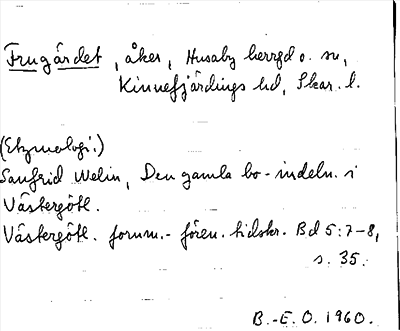 Frugärdet, åker, Husaby herrgd o. sn,
Kinnefjärdings hd, Skar. l.
(Etymologi:)
Sanfrid Welin, Den gamla bo-indeln. i
Västergötl.
Västergötl. fornm.-fören. tidskr. Bd 5:7-8,
s. 35.
B.-E. O. 1960.